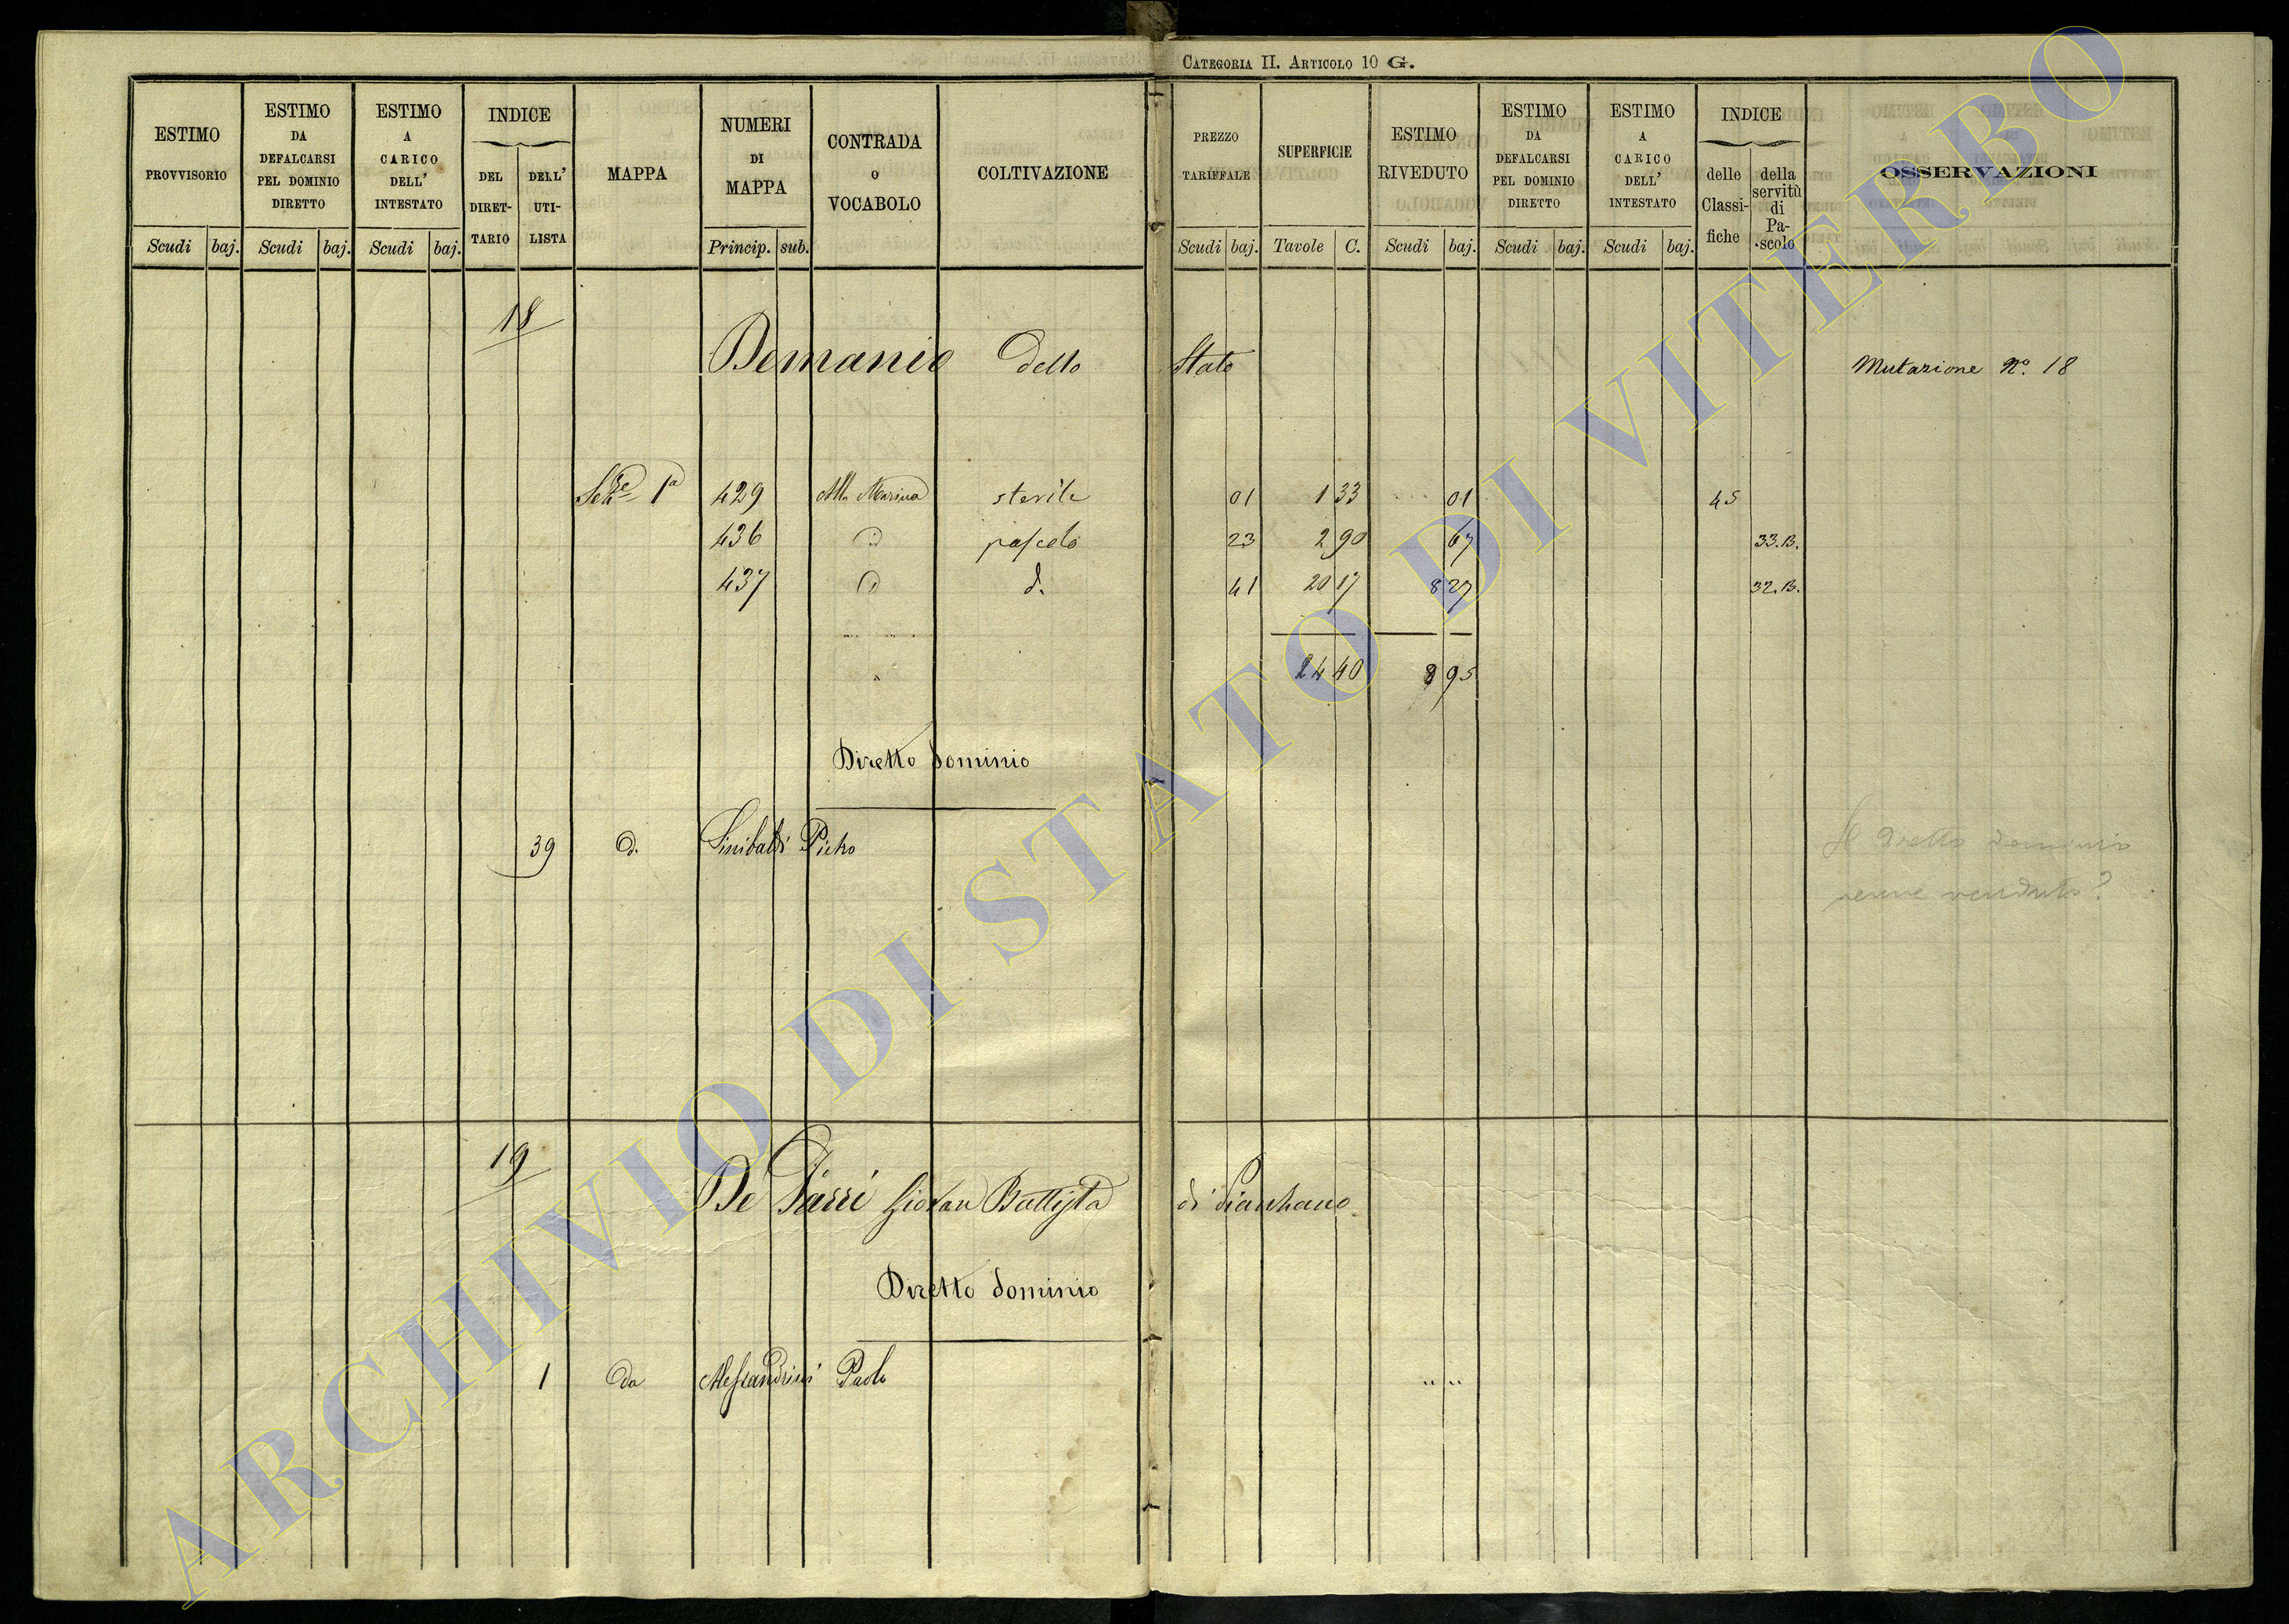 CATEGORIA II. ARTICOLO 10 G.
ESTIMO PROVVISORIO Scudi baj.
ESTIMO DA DEFALCARSI PEL DOMINIO DIRETTO Scudi baj.
ESTIMO A CARICO DELL' INTESTATO Scudi baj.
INDICE DEL DIRETTARIO DELL' UTILISTA
MAPPA
NUMERI DI MAPPA Princip. sub.
CONTRADA O VOCABOLO
COLTIVAZIONE
PREZZO TARIFFALE Scudi baj.
SUPERFICIE Tavole C.
ESTIMO RIVEDUTO Scudi baj.
ESTIMO DA DEFALCARSI PEL DOMINIO DIRETTO Scudi baj.
ESTIMO A CARICO DELL' INTESTATO Scudi baj.
INDICE delle Classifiche della servitù di Pascolo
OSSERVAZIONI
18
Demanio dello Stato Mutazione No. 18
Sez.e 1a 429 Alla Marina sterile 01 1 33 01 45
436 d pascolo 23 2 90 67 33.B.
437 d d. 41 20 17 8 27 32.B.
24 40 8 95
Diretto dominio
39 d. Sinibaldi Pietro
Il diretto dominio
venne venduto?
19
De Parri Giovan Battista di
Diretto dominio
1 da Alessandrini Paolo
ARCHIVIO DI STATO DI VITERBO